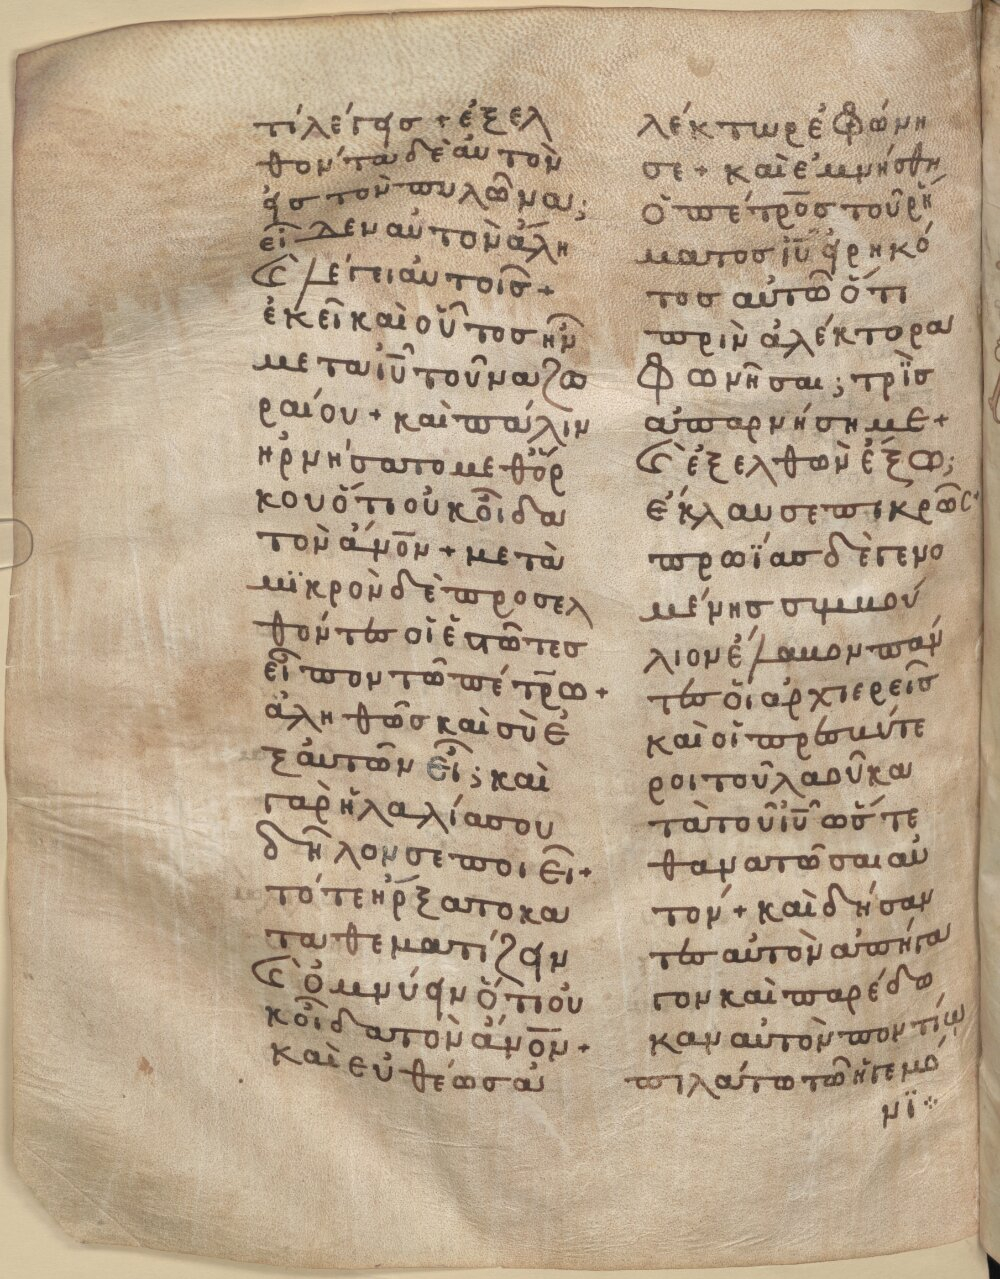 τί λέγεις + ἐξελ
θόντα δὲ αὐτὸν
εἰς τὸν πυλῶνα;
εἶδεν αὐτὸν ἄλη
κ(αὶ) λέγει αὐτοῖς +
ἐκεῖ καὶ οὗτος ἦν
μετα ἰῦ τοῦ ναζω
ραίου + καὶ πάλιν
ἠρνήσατο μεθ ὅρ
κου ὅτι οὐκ οἶδα
τὸν ἄνον + μετὰ
μϊκρὸν δὲ προσελ
θόντες οἱ ἑστῶτες
εἶπον τῶ πέτρω +
ἀληθῶς καὶ σὺ ἐ
ξ αὐτῶν εἶ; καὶ
γὰρ ἡ λαλία σου
δῆλόν σε ποιεῖ +
τότε ἤρξατο κα
ταθεματίζειν
κ(αὶ) ὀμνύειν ὅτι οὐ
κ οἶδα τὸν ἄνον +
καὶ εὐθέως ἀ
λέκτωρ ἐφώνη
σε + καὶ ἐμνήσθη
ὁ πέτρος τοῦ ῥή
ματος ἰῦ εἰρηκό
τος αὐτῶ ὅτι
πρὶν ἀλέκτορα
φωνῆσαι; τρῒς
ἀπαρνήση με +
κ(αὶ) ἐξελθὼν ἔξω;
ἔκλαυσε πικρῶς +
πρωΐας δὲ γενο
μένης συμβού
λιον ἔλαβον πάν
τες οἱ ἀρχιερεῖς
καὶ οἱ πρεσβύτε
ροι τοῦ λαοῦ κα
τὰ τοῦ ἰῦ ὥστε
θανατῶσαι αὐ
τόν + καὶ δήσαν
τες αὐτὸν ἀπήγα
γον καὶ παρέδω
καν αὐτὸν ποντίω
πιλάτω τῶ ἡγεμό
νϊ ⁘